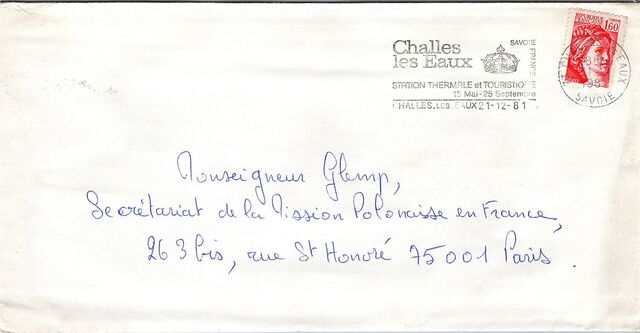 Challes
les Eaux
SAVOIE FRANCE
STATION THERMALE et TOURISTIQUE
15 Mai-25 Septembre
CHALLES.LES.EAUX 21-12-81
1,60
EAUX
SAVOIE
Monseigneur Glemp,
Secrétariat de la Mission Polonaise en France,
263 bis, rue St Honoré 75001 Paris.